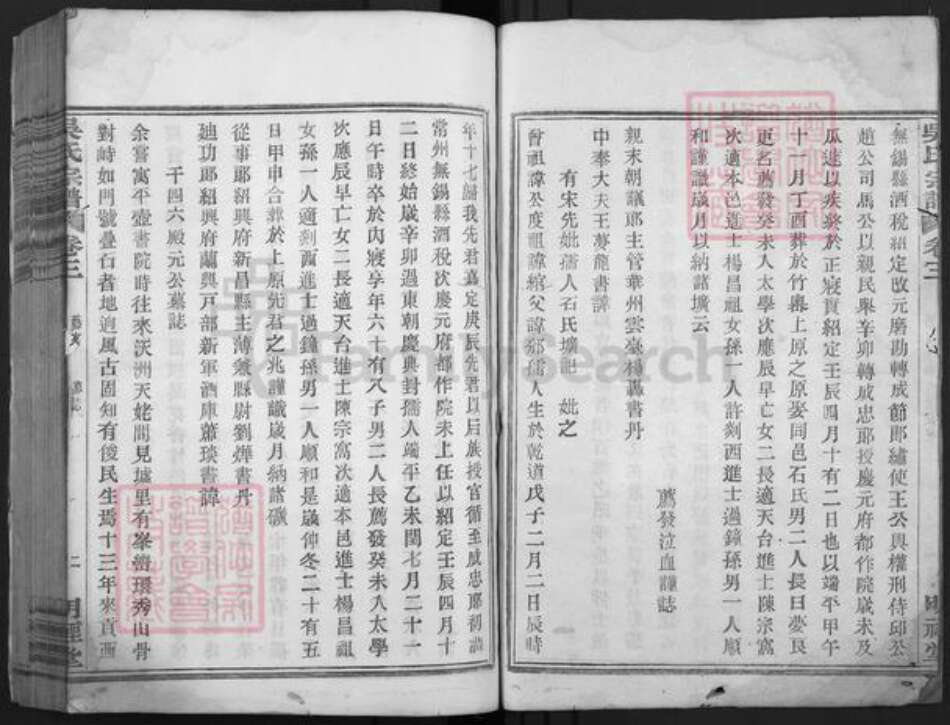 無錫縣酒稅紹定改元磨勘轉成節郎繡使王公與權刑侍邱公
趙公司馬公以親民舉辛卯轉成忠郎授慶元府都作院歲未及
瓜遽以疾終於正寢實紹定壬辰四月十有二日也以端平甲午
十一月丁酉葬於竹嶴上原之原娶同邑石氏男二人長曰夢艮
更名薦發癸未入太學次應辰早亡女二長適天台進士陳宗寓
次適本邑進士楊昌祖女孫一人許剡西進士過鐘孫男一人順
和謹識歲月以納諸壙云
薦發泣血謹誌
親末朝議郎主管華州雲臺楊轟書丹
中奉大夫王夢龍書諱
有宋先妣孺人石氏壙記 妣之
曾祖諱公度祖諱綰父諱鄒孺人生於乾道戊子二月二日辰時
年十七歸我先君嘉定庚辰先君以后族授官循至成忠郎初
常州無錫縣酒稅次慶元府都作院未上任以紹定壬辰四月十
二日終始歲辛卯遇東朝慶典封孺人端平乙未閏七月二十一
日午時卒於內寢享年六十有八子男二人長薦發癸未入太學
次應辰早亡女二長適天台進士陳宗寓次適本邑進士楊昌祖
女孫一人適剡西進士過鐘孫男一人順和是歲仲冬二十有五
日甲申合葬於上原先君之兆謹識歲月納諸壙
從事郎紹興府新昌縣主薄兼縣尉劉燁書丹
廸功郎紹興府蘭興戸部新軍酒庫蕭琰書諱
千四六殿元公墓誌
余嘗寓平壺書院時往來沃洲天姥間見墟里有峯巒環秀山骨
對峙如門號疊石者地迥風古固知有俊民生焉十三年來貢西
吳氏宗譜
卷三
墓誌
二
明禋堂
吳氏宗譜
卷三